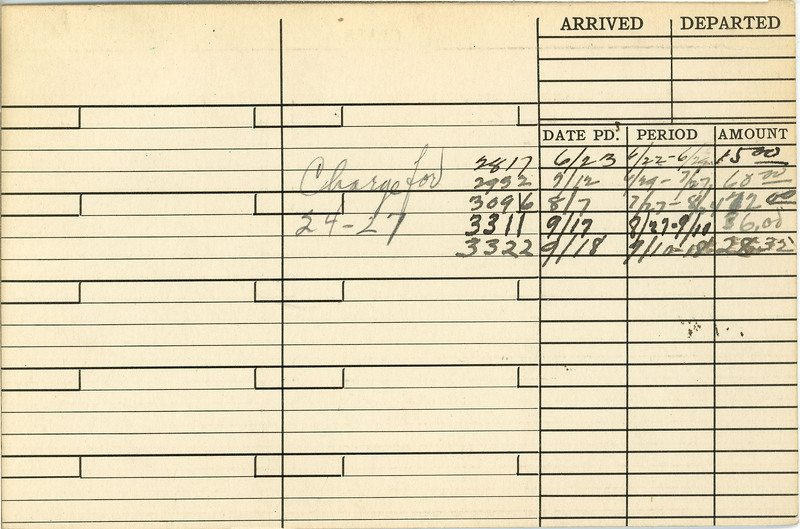 ARRIVED DEPARTED
DATE PD. PERIOD AMOUNT
2817 6/23 6/22-6/29 15 00
Charge for 2952 7/12 6/29-7/27 60 00
3096 8/7 7/27-8/
24-27 3311 9/17 8/27-9/10 36.00
3322 9/18 9/10-18